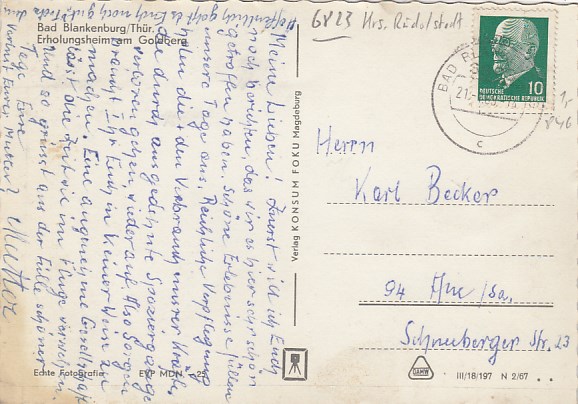 Hoffentlich geht es Euch noch gut
6823 Krs. Rudolstadt
Bad Blankenburg/Thür.
Erholungsheim am Goldberg
Meine Lieben! Zuerst will ich Euch
noch berichten, das wir es hier sehr schön
getroffen haben. Schöne Erlebnisse füllen
unsere Tage aus. Reichliche Verpflegung
holen die den Verbrauch unsrer Kräfte
die durch ausgedehnte Spaziergänge
verloren gehen, wieder auf. Also Sorgen
braucht Ihr Euch in keiner Weise zu
machen. Eine angenehme Gesellschaft
lässt die Zeit wie im Fluge vergehen.
Und so grüsst aus der Fülle schöner
Tage Eure
Mutter
Verlag KONSUM FOKU Magdeburg
Echte Fotografie
EVP MDN -,25
BAD
21.
c
DEUTSCHE
DEMOKRATISCHE REPUBLIK
10
1,-
846
Herrn
Karl Becker
94 Aue/Sa.
Schneeberger Str. 23
DAHW
III/18/197 N 2/67